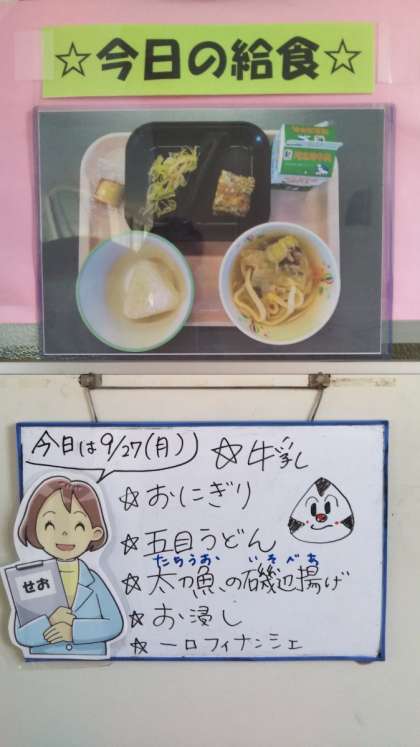 ☆今日の給食☆
今日は9/27(月)
☆牛乳
☆おにぎり
☆五目うどん
たちうお いそべあ
☆太刀魚の磯辺揚げ
☆お浸し
☆一口フィナンシェ
せお